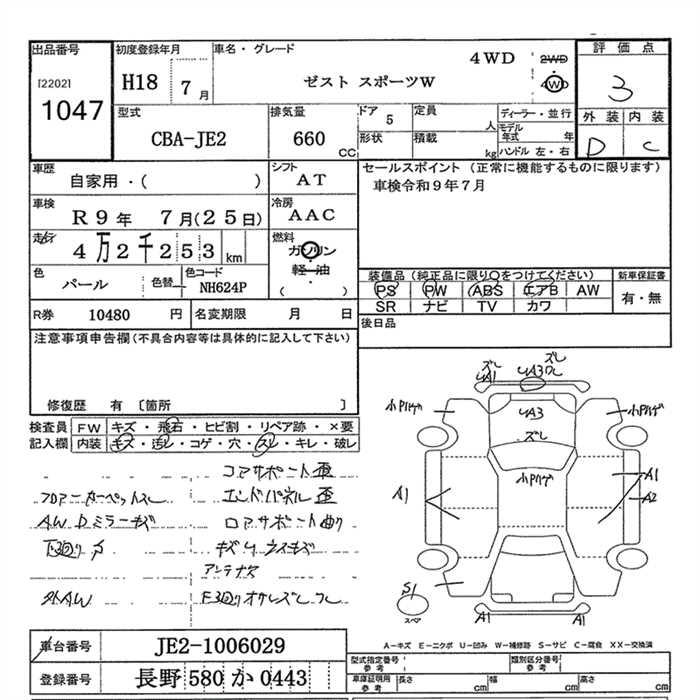 出品番号
[2202]
1047
初度登録年月
H18 7月
車名・グレード
ゼスト スポーツW
4WD
2WD
4WD
評価点
3
外装 内装
D C
型式
CBA-JE2
排気量
660 CC
ドア 5
定員 人
形状
積載 kg
ディーラー・並行
モデル年式 年
ハンドル 左・右
車歴
自家用・( )
シフト
AT
セールスポイント (正常に機能するものに限ります)
車検令和9年7月
車検
R9年 7月(25日)
冷房
AAC
走行
4万2千253km
燃料
ガソリン
軽・油
( )
色
パール
色替
色コード
NH624P
装備品 (純正品に限り○をつけてください)
PS PW ABS エアB AW
SR ナビ TV カワ
新車保証書
有・無
R券 10480 円
名変期限 月 日
後日品
注意事項申告欄(不具合内容等は具体的に記入して下さい)
修復歴 有 〔箇所 〕
検査員記入欄
FW キズ・飛石・ヒビ割・リペア跡・×要
内装 キズ・汚レ・コゲ・穴・スレ・キレ・破レ
コアサポート歪
フロアーカーペットスレ
エンドパネル歪
AW Dミラーキズ
ロアサポート曲り
下廻りサ
アンテナ欠
社外AW
ズレ
UA1
UA3
ズレ
UA3
ズレ
小Pハゲ
小Pハゲ
小Pハゲ
A1
A1
A2
S1
スペア
A1
A1
車台番号
JE2-1006029
登録番号
長野 580 か 0443
A−キズ E−エクボ U−凹み W−補修跡 S−サビ C−腐食 XX−交換済
型式指定番号 参考
類別区分番号 参考
車庫証明用 参考
長さ cm
幅 cm
高さ cm